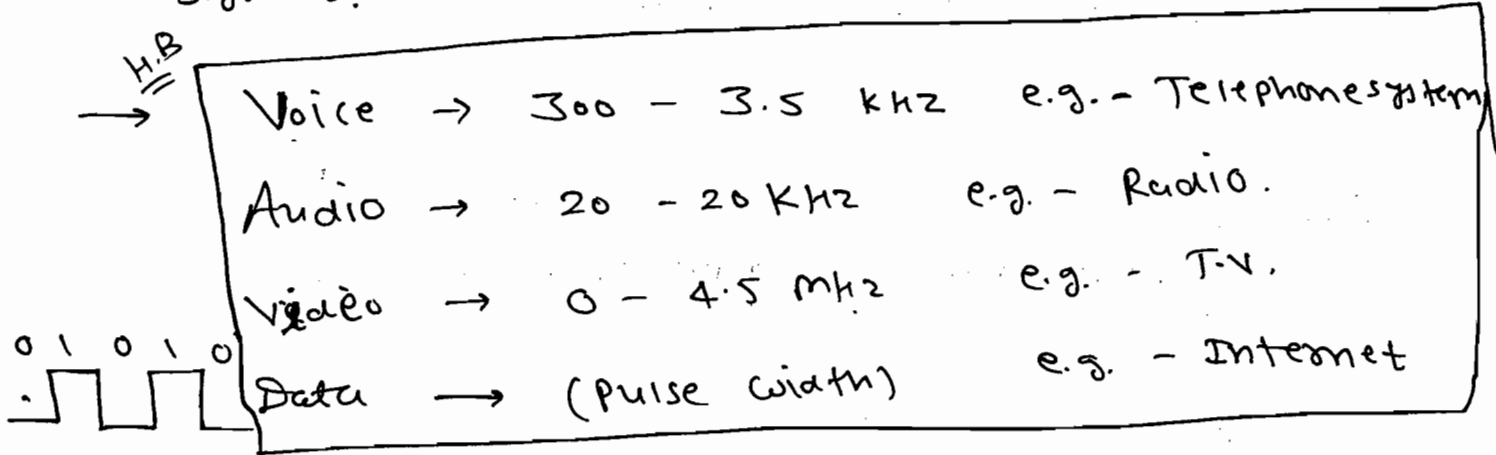 H.B
→ Voice → 300 - 3.5 KHZ e.g. - Telephonesystem
Audio → 20 - 20 KHZ e.g. - Radio.
Vidèo → 0 - 4.5 MHz e.g. - T.V.
0 1 0 1 0
Data → (Pulse width) e.g. - Internet